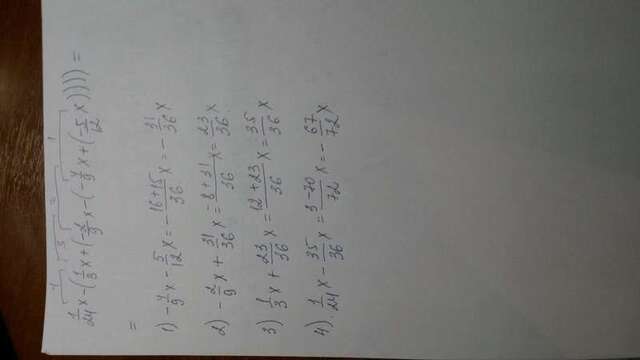 4 3 2 1
1/24 x - (1/3 x + (-2/9 x - (-4/9 x + (-5/12 x)))) =
=
1) -4/9 x - 5/12 x = - 16+15/36 x = - 31/36 x
2) - 2/9 x + 31/36 x = -8+31/36 x = 23/36 x
3) 1/3 x + 23/36 x = 12+23/36 x = 35/36 x
4) 1/24 x - 35/36 x = 3-70/72 x = - 67/72 x